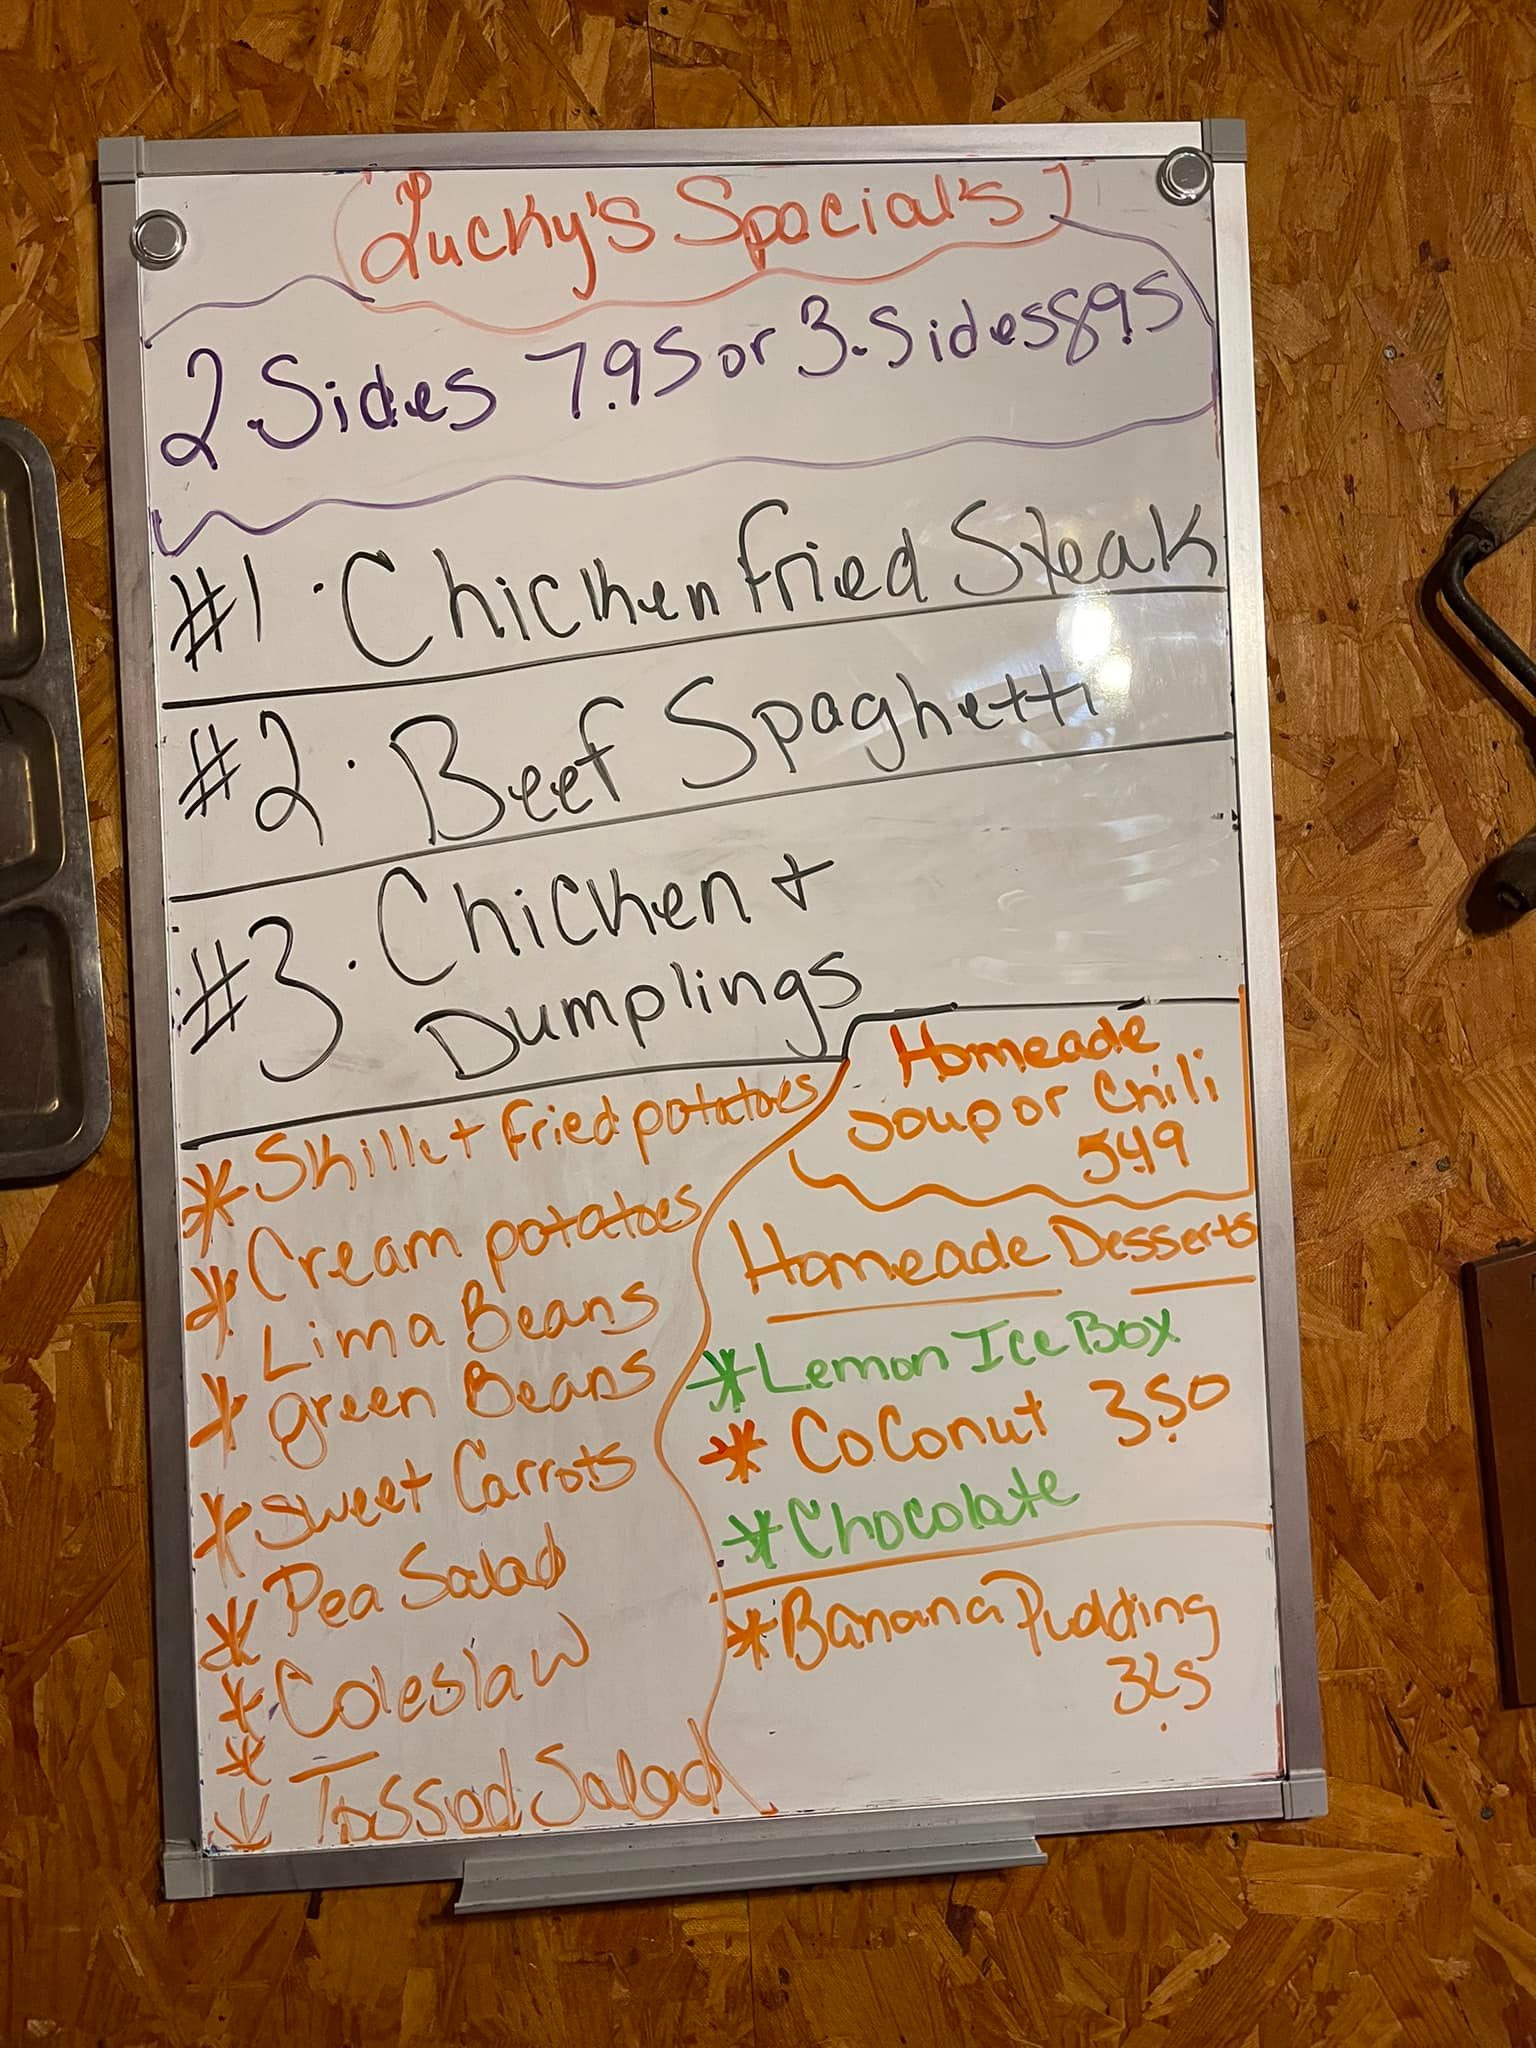 Lucky's Special's
2. Sides 7.95 or 3. Sides 8.95
#1 · Chicken Fried Steak
#2 · Beef Spaghetti
#3 · Chicken +
Dumplings
* Skillet Fried potatoes
* Cream potatoes
* Lima Beans
* green Beans
* Sweet Carrots
* Pea Salad
* Coleslaw
* Tossed Salad
Homeade
Soup or Chili
5.49
Homeade Desserts
* Lemon Ice Box
* Coconut 3.50
* Chocolate
* Banana Pudding